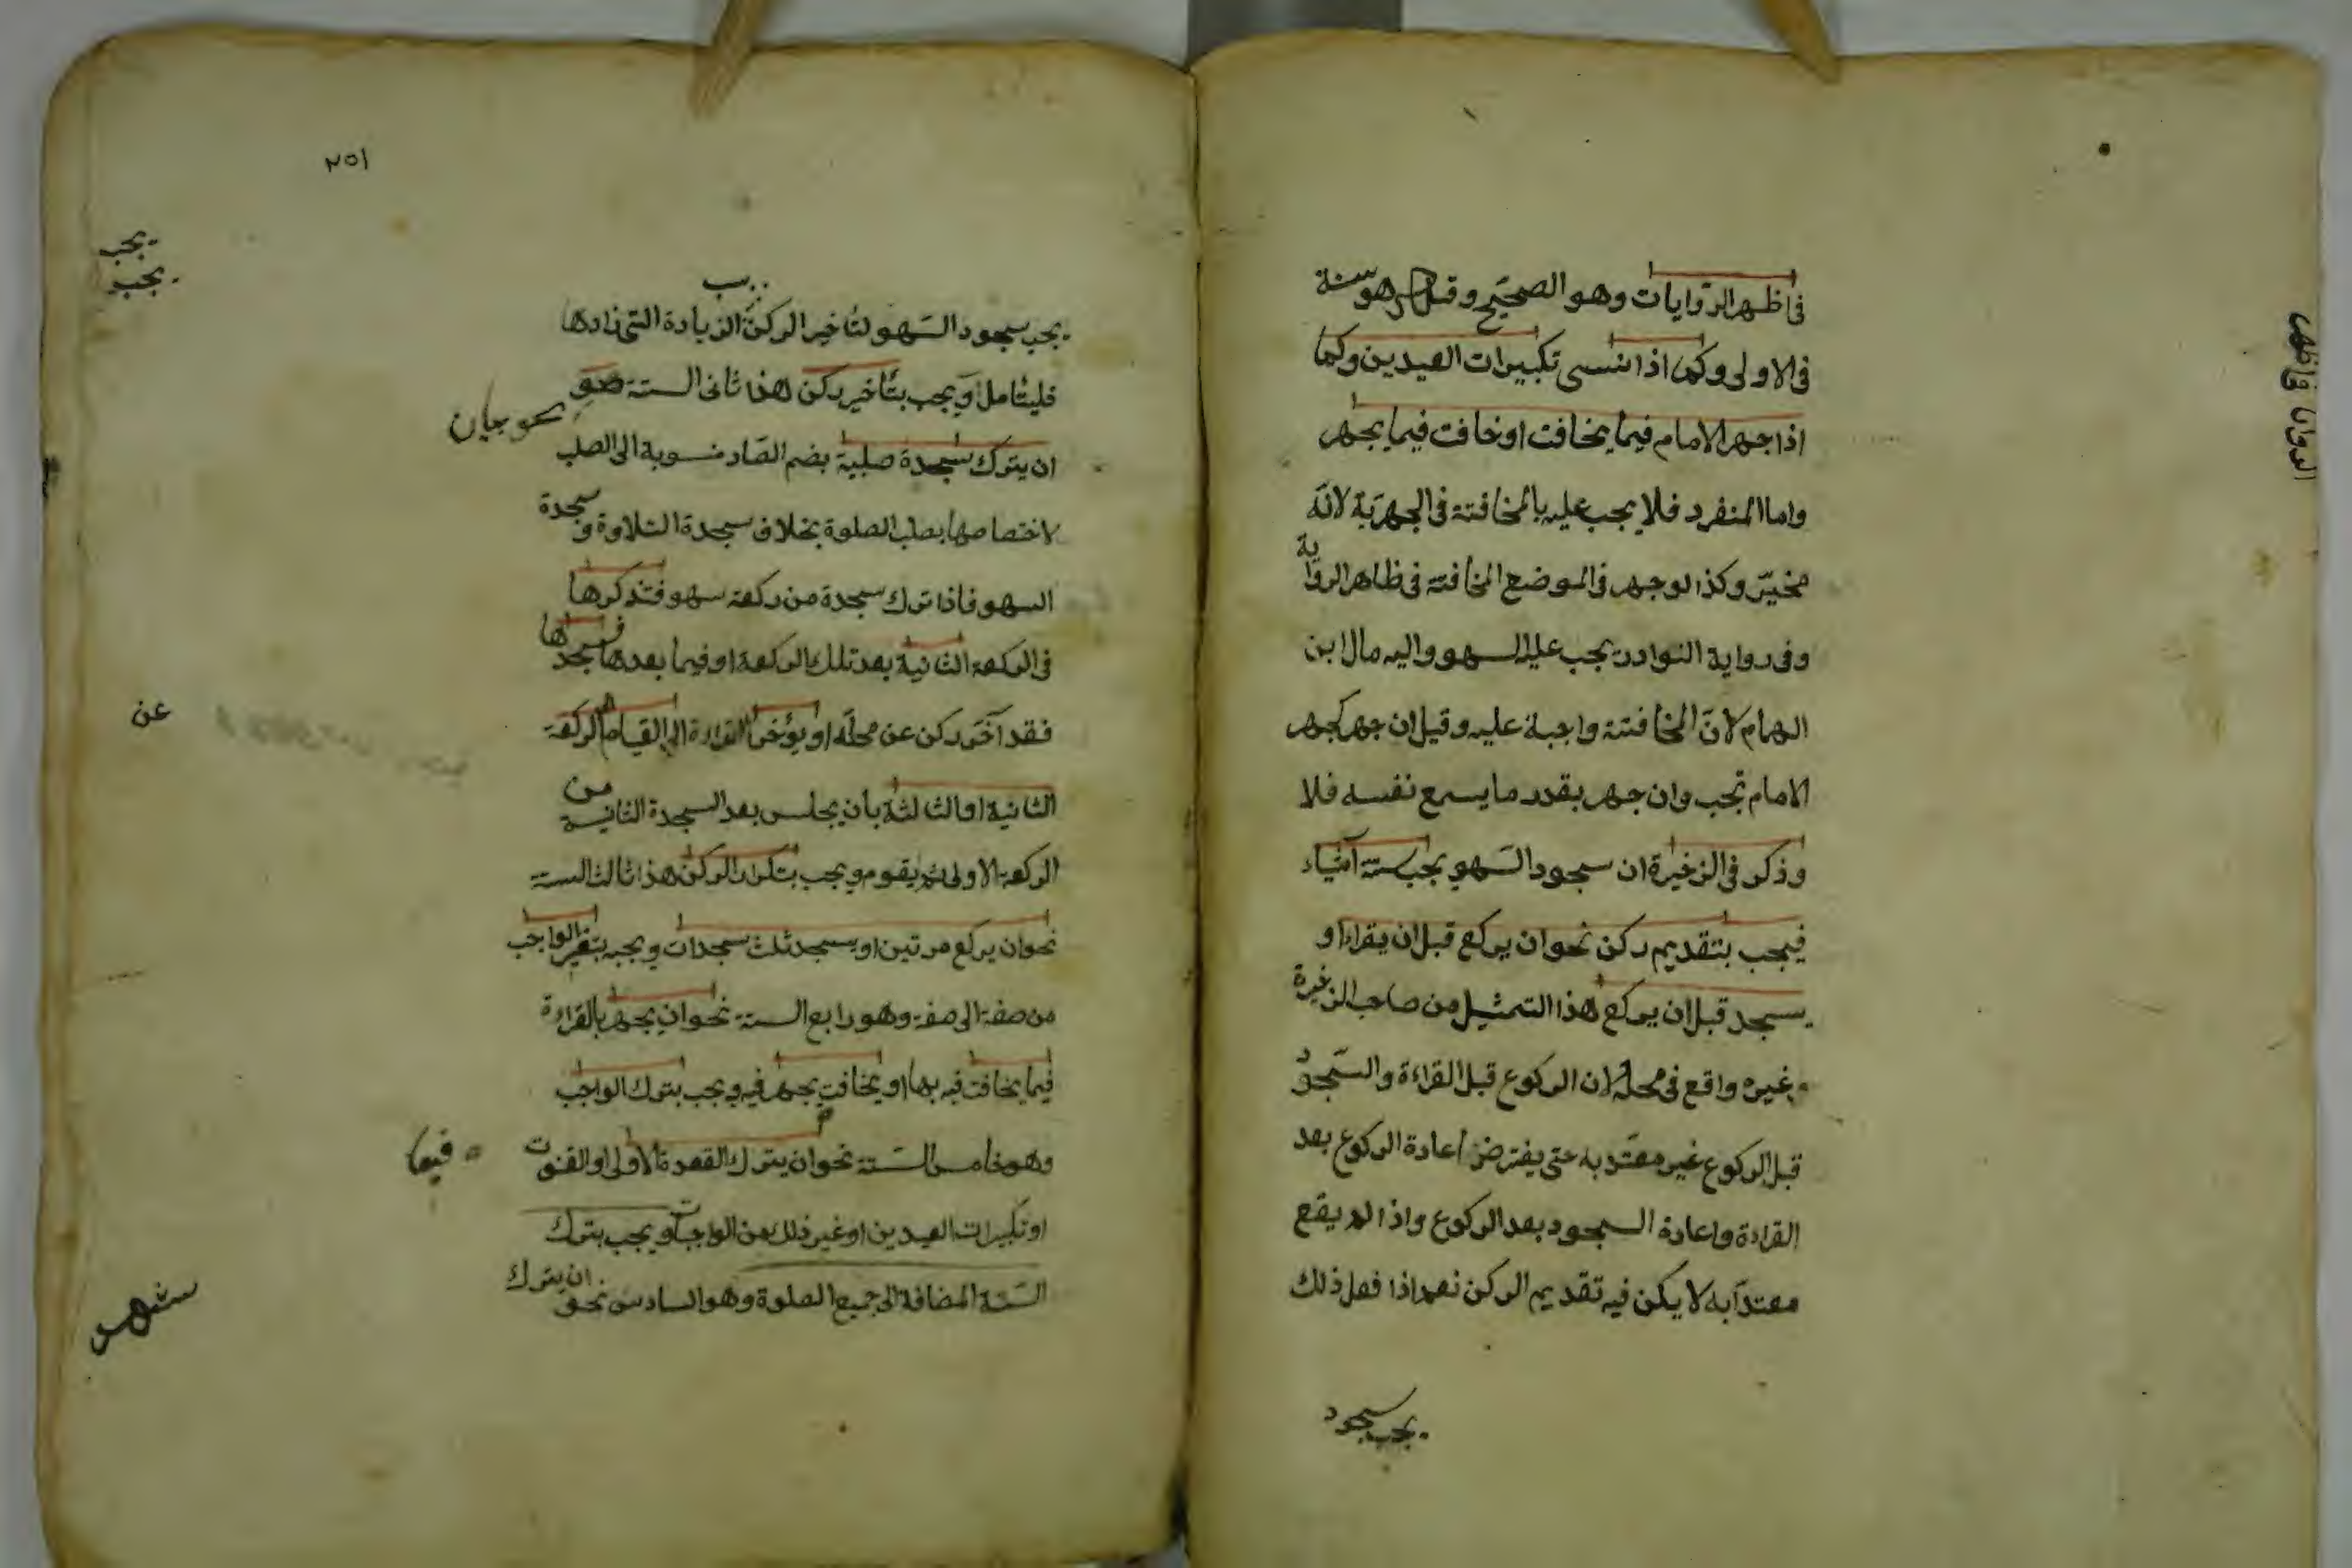 فى اظهر الروايات وهو الصحيح وقيل هو سنة
فى الاولى وكما اذا نسى تكبيرات العيدين وكما
اذا جهر الامام فيما يخافت او خافت فيما يجهر
واما المنفرد فلا يجب عليه بالمخافتة فى الجهرية لانه
مخير وكذا لو جهر فى الموضع المخافتة فى ظاهر الرواية
وفى رواية النوادر يجب عليه السهو واليه مال ابن
الهمام لان المخافتة واجبة عليه وقيل ان جهر كجهر
الامام تجب وان جهر بقدر ما يسمع نفسه فلا
وذكر فى الذخيرة ان سجود السهو يجب بستة اشياء
فيجب بتقديم ركن نحو ان يركع قبل ان يقراء او
يسجد قبل ان يركع هذا التمثيل من صاحب الذخيرة
غيره واقع فى محله لان الركوع قبل القراءة والسجود
قبل الركوع غير معتد به حتى يفترض اعادة الركوع بعد
القراءة واعادة السجود بعد الركوع واذا لم يقع
معتدا به لا يكن فيه تقديم الركن نعم اذا فعل ذلك
يجب سجود
فى اظهر
الروايات
٢٥١
يجب
يجب
يجب سجود السهو لتاخير الركن الزيادة التى زادها
فليتامل ويجب بتاخير ركن هذا ثانى الستة
نحو
ان يترك سجدة صلبية بضم الصاد منسوبة الى الصلب
لاختصاصها بصلب الصلوة بخلاف سجدة التلاوة و سجدة
السهو فاذا ترك سجدة من ركعة سهو فتذكرها
فى الركعة الثانية بعد تلك الركعة او فيما بعدها فسجدها
فقد آخر ركن عن محله او يؤخر القراءة الى القيام الى الركعة
عن
الثانية او الثالثة بان يجلس بعد السجدة الثانية من
الركعة الاولى ثم يقوم ويجب بتكرار الركن هذا ثالث الستة
نحو ان يركع مرتين او يسجد ثلث سجدات ويجب بتغير الواجب
من صفة الى صفة وهو رابع الستة نحو ان يجهر بالقراءة
فيما يخافت فيه بها او يخافت يجهر فيه ويجب بترك الواجب
فيما
وهو خامس الستة نحو ان يترك القعدة الاولى او القنوت
او تكبيرات العيدين او غير ذلك من الواجبات ويجب بترك
السنة المضافة الى جميع الصلوة وهو السادس نحو ان يترك